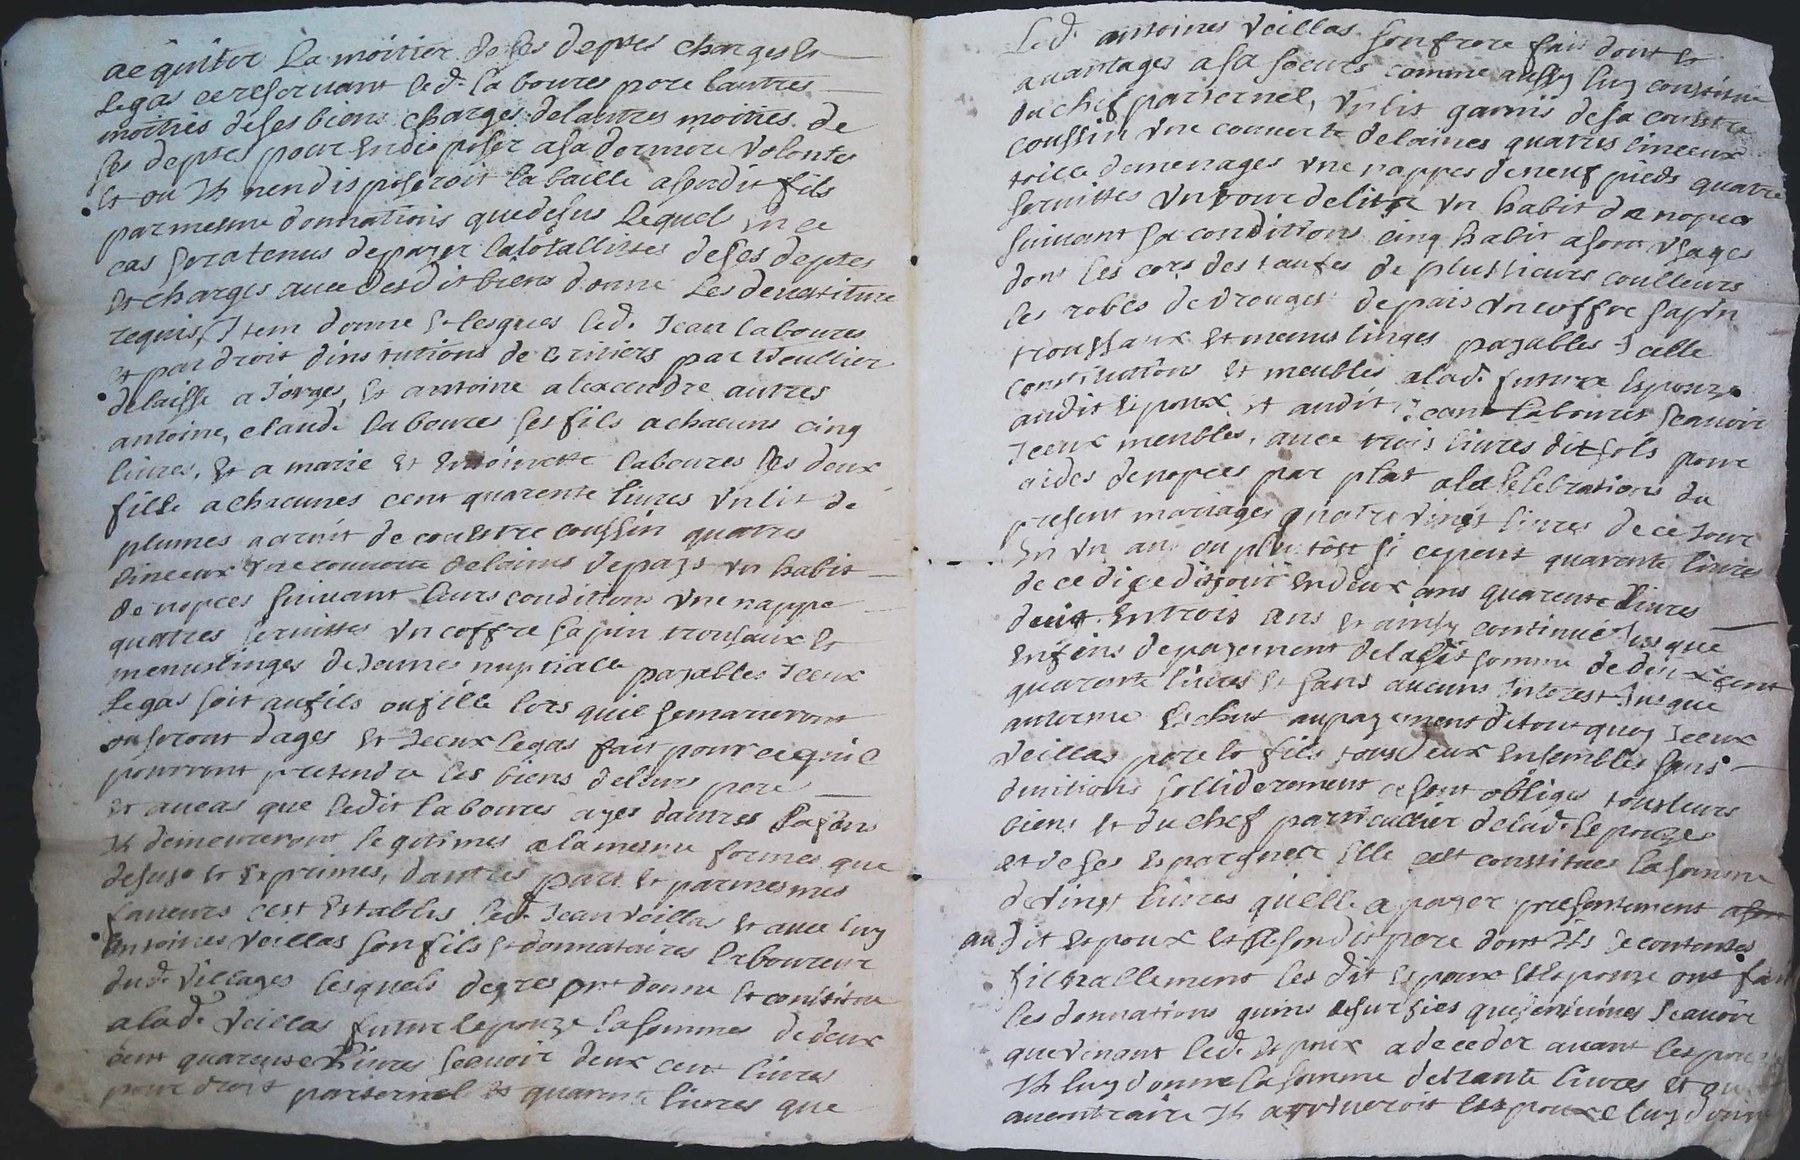 aequiter La moitier de ses deptes charges Et
Legas ce reservant led. laboures pere lautres
moities de ses biens charges delautres moities de
ses deptes pour En disposer a sa derniere Volontes
Et ou Il nen disposeroit la baille a sondit fils
par mesme donnations que desus Lequel En ce
cas sera tenus de payer la totallittes de ses deptes
Et charges avec desdit biens donne Les devestiture
requis, Item donne Et legues led. Jean laboures
Et par droit dinstitutions de par
delaisse a Jorges, Et antoine alexcendre autres
antoine, claude laboures ses fils a chacuns cinq
livres, Et a marie Et Entoinette laboures ses deux
fille a chacunes cent quarente livres Vn lit de
plumes garnit de couestre coussin quatres
Linceux Vne couverte de laines de pays Vn habit
de nopces suivant leurs conditions Vne nappe
quatres servittes Vn coffre sapin trousaux Et
menus linges de Jeunes nuptiale payables Iceux
Legas soit au fils ou fille lors quil se marieront
ou seront dages Et Iceux legas fait pour ce quil
pourront pretendre les biens de leurs pere
Et au cas que ledit laboures ayes dautres
Il demeureront legitimes a la mesme formes que
desus Et Exprimes, dautres part Et par mesmes
faveurs cest Establis led. Jean Veillas Et avec luy
Entoines Veillas son fils Et donnataires laboureur
dud. Villages lesquels de gres ont donne Et constitue
a lad. Veillas future Espouze la sommes de deux
cent quarente livres scavoir deux cent livres
pour droit paternel Et quarente livres que
Led. antoines Veillas son frere fait dont Et
avantages a sa soeurs comme aussy luy constitue
du chef paternel, Vn lit garnis de sa couestre
coussin Vne couverte de laines quatres linceux
toille de menages Vne nappes de neuf pieds quatre
servittes Vn tour de lit Vn habit de nopces
suivant sa conditions cinq habit a sont Vsages
dont les cors des taufes de plusieurs coulleurs
les robes de drouget de pais Vn coffre sapin
troussaux Et menus linges payables Icelle
constitutions Et meubles a lad. future Espouze
audit Espoux Et audit Jean laboures scavoir
Iceux meubles, avec trois livres dit sols pour
aides de nopces par plat a la selebrations du
present mariages quatre vingt livres de ce Jour
En Vn ans ou plu tost si ce peut quarente livres
de ce dige dit jour En deux ans quarente livres
duit En trois ans Et ainsy continue jusque
Enfins de payement de ladit somme de deux cent
quarente livres Et sans aucuns Interest jusque
au terme Eschut au payement de tout quoy Iceux
Veillas pere Et fils tous deux Ensembles sans
divitions solliderement ce sont obliges tous leurs
biens Et du chef particullier de lad. Espouze
Et de ses Espargnes Elle cest constitues la somme
de Vingt livres quelle a payer presentement
au dit Espoux Et a sondit pere dont Ils ce contentes
finallement les dit Espoux Et Espouze ont fait
les donnations quins Scavoir
que venant led. Espoux a deceder avant Lespouze
Il luy donne la somme de trante livres Et qu
au contraire Il arriveroit Espouze luy donne